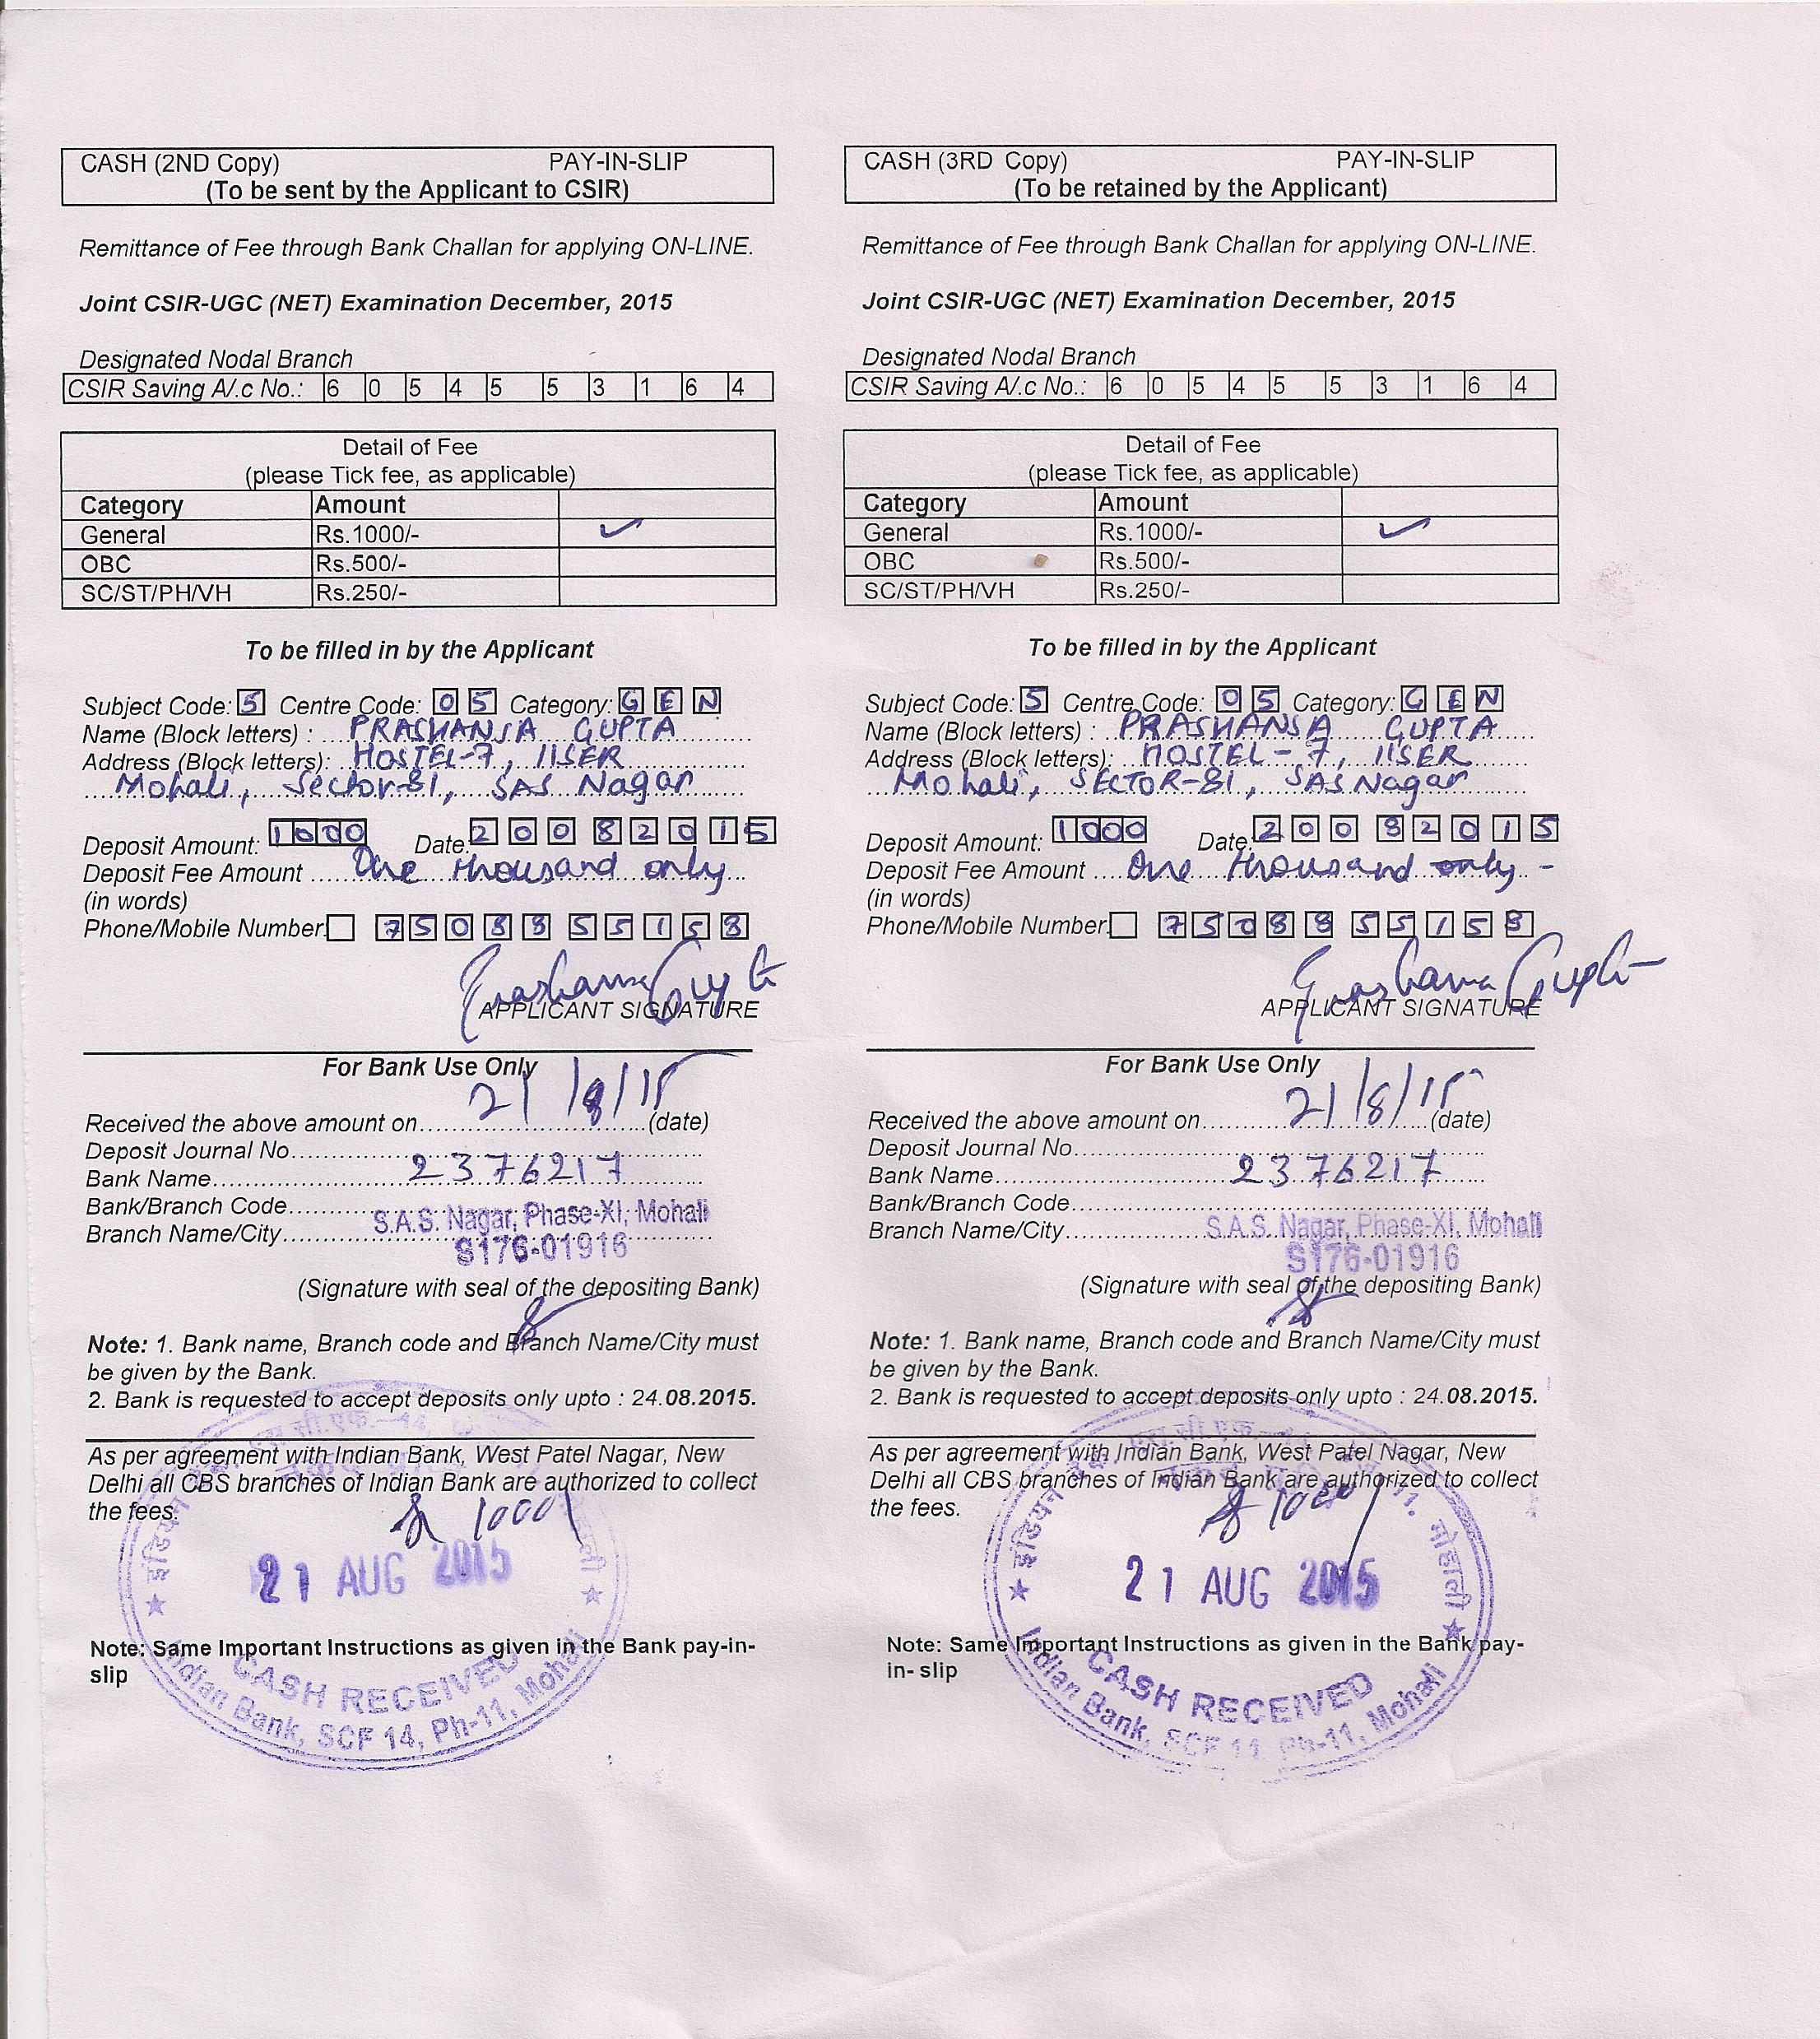 CASH (2ND Copy) PAY-IN-SLIP
(To be sent by the Applicant to CSIR)
Remittance of Fee through Bank Challan for applying ON-LINE.
Joint CSIR-UGC (NET) Examination December, 2015
Designated Nodal Branch
CSIR Saving A/.c No.: 6 0 5 4 5 5 3 1 6 4
Detail of Fee
(please Tick fee, as applicable)
Category Amount
General Rs.1000/- ✓
OBC Rs.500/-
SC/ST/PH/VH Rs.250/-
To be filled in by the Applicant
Subject Code: 5 Centre Code: 0 5 Category: G E N
Name (Block letters) : PRASHANSA GUPTA
Address (Block letters): HOSTEL-7, IISER
Mohali, Sector-81, SAS Nagar
Deposit Amount: 1000 Date: 2 0 0 8 2 0 1 5
Deposit Fee Amount One thousand only
(in words)
Phone/Mobile Number. 7 5 0 8 8 5 5 1 5 8
Prashansa Gupta
APPLICANT SIGNATURE
For Bank Use Only
Received the above amount on 21/8/15 (date)
Deposit Journal No.
Bank Name 2376217
Bank/Branch Code
Branch Name/City S.A.S. Nagar, Phase-XI, Mohali
S176-01916
(Signature with seal of the depositing Bank)
Note: 1. Bank name, Branch code and Branch Name/City must
be given by the Bank.
2. Bank is requested to accept deposits only upto : 24.08.2015.
As per agreement with Indian Bank, West Patel Nagar, New
Delhi all CBS branches of Indian Bank are authorized to collect
the fees.
1000/
21 AUG 2015
Note: Same Important Instructions as given in the Bank pay-in-
slip
CASH RECEIVED
Indian Bank, SCF 14, Ph-11, Mohali
CASH (3RD Copy) PAY-IN-SLIP
(To be retained by the Applicant)
Remittance of Fee through Bank Challan for applying ON-LINE.
Joint CSIR-UGC (NET) Examination December, 2015
Designated Nodal Branch
CSIR Saving A/.c No.: 6 0 5 4 5 5 3 1 6 4
Detail of Fee
(please Tick fee, as applicable)
Category Amount
General Rs.1000/- ✓
OBC Rs.500/-
SC/ST/PH/VH Rs.250/-
To be filled in by the Applicant
Subject Code: 5 Centre Code: 0 5 Category: G E N
Name (Block letters) : PRASHANSA GUPTA
Address (Block letters): HOSTEL-7, IISER
Mohali, SECTOR-81, SAS Nagar
Deposit Amount: 1000 Date: 2 0 0 8 2 0 1 5
Deposit Fee Amount One thousand only -
(in words)
Phone/Mobile Number. 7 5 0 8 8 5 5 1 5 8
Prashansa Gupta
APPLICANT SIGNATURE
For Bank Use Only
Received the above amount on 21/8/15 (date)
Deposit Journal No.
Bank Name 2376217
Bank/Branch Code
Branch Name/City S.A.S. Nagar, Phase-XI, Mohali
S176-01916
(Signature with seal of the depositing Bank)
Note: 1. Bank name, Branch code and Branch Name/City must
be given by the Bank.
2. Bank is requested to accept deposits only upto : 24.08.2015.
As per agreement with Indian Bank, West Patel Nagar, New
Delhi all CBS branches of Indian Bank are authorized to collect
the fees.
1000/
इंडियन मोहाली
21 AUG 2015
Note: Same Important Instructions as given in the Bank pay-
in- slip
CASH RECEIVED
Indian Bank, SCF 11, Ph-11, Mohali